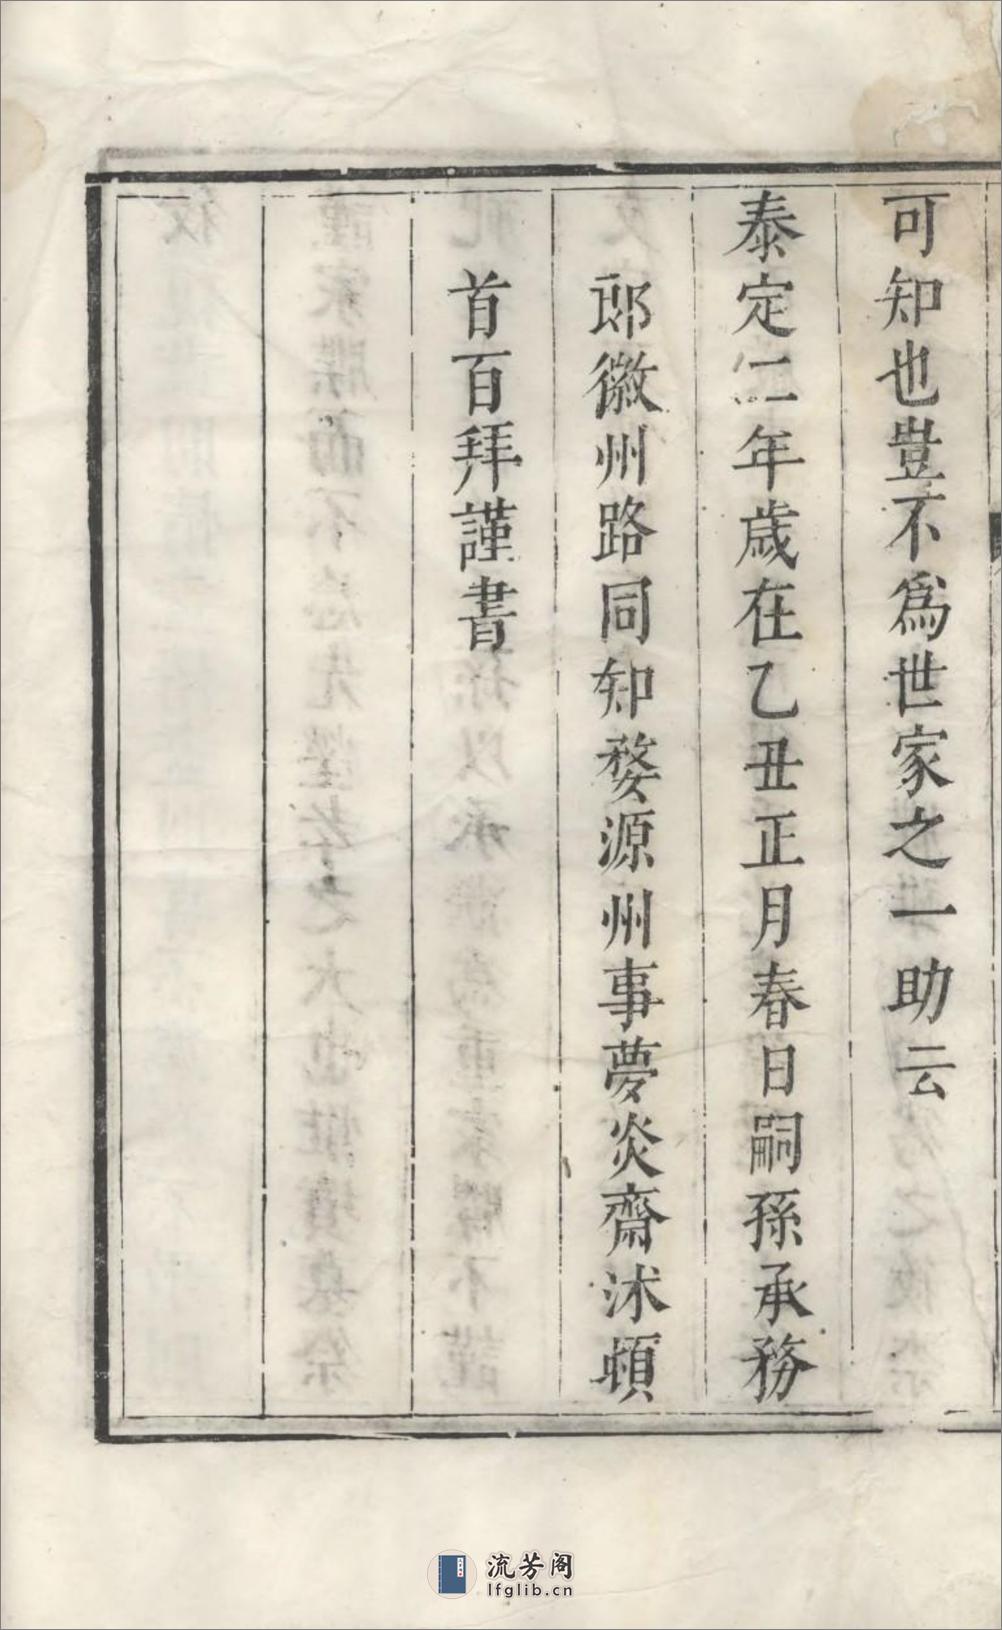 可知也豈不爲世家之一助云
泰定二年歲在乙丑正月春日嗣孫承務
郎徽州路同知婺源州事夢炎齋沐頓
首百拜謹書
流芳阁
lfglib.cn